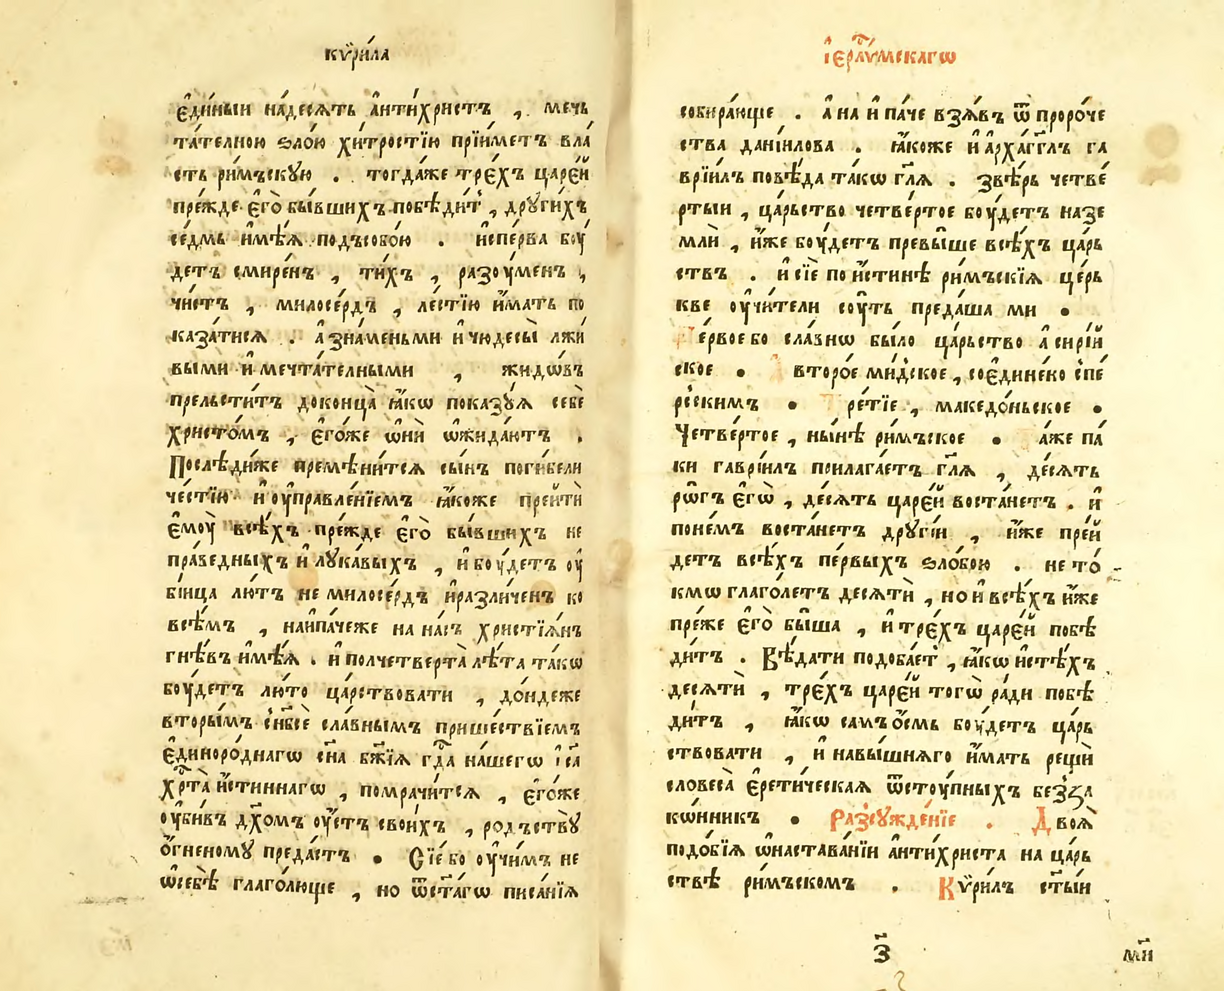 кѷри́ла
є҆ди́ныи на́десѧть а҆нти́христъ , мечь
та́телною ѕло́ю хи́тростїю прїи́метъ вла́
сть ри́мъскꙋю . тогда́же тре́хъ царе́й
пре́жде є҆го̀ бы́вшихъ побѣ́дит , дрꙋги́хъ
се́дмь и҆мѣ́ѧ подъсобо́ю . и҆спе́рва боу́
детъ смире́нъ , ти́хъ , разоу́менъ ,
чи́стъ , милосе́рдъ , ле́стїю и҆́мать по
каза́тисѧ . а҆ зна́меньми и҆ чюдесы̀ лжи́
выми и҆ мечта́телными , жидѡ́въ
прельсти́тъ доконца̀ ꙗ҆́кѡ показꙋ́ѧ себѐ
христо́мъ , є҆го́же ѡ҆нѝ ѡ҆жида́ютъ .
Послѣди́же премѣни́тсѧ сы́нъ поги́бели
че́стїю и҆ оу҆правле́нїемъ ꙗ҆́коже прейтѝ
є҆моу̀ всѣ́хъ пре́жде є҆го̀ бы́вшихъ не
пра́ведныхъ и҆ лꙋка́выхъ , и҆ боу́детъ оу҆
бі́ица лю́тъ не милосе́рдъ и҆разли́ченъ ко
всѣ́мъ , наипа́чеже на на́съ христїѧ́нъ
гнѣ́въ и҆мѣ́ѧ . и҆ полчетверта̀ лѣ́та та́кѡ
боу́детъ лю́то ца́рствовати , до́ндеже
вторы́мъ с̾нб҃сѐ сла́внымъ прише́ствїемъ
є҆диноро́днагѡ сн҃а бж҃їѧ гд҃а на́шегѡ і҆с҃а
хр҃та̀ и҆́стиннагѡ , помрачи́тсѧ , є҆го́же
оу҆би́въ дх҃омъ оу҆́стъ свои́хъ , ро́дьствꙋ
о҆́гненомꙋ преда́стъ • Сїе́ бо оу҆чи́мъ не
ѿсебѣ̀ глаго́люще , но ѿст҃а́гѡ писа́нїѧ
і҆ерⷭ҇лі́мскагѡ
собира́юще . а҆ на и҆ па́че взѧ́въ ѿ проро́че
ства дані́илова . ꙗ҆́коже и҆ а҆рха́гг҃лъ га
врїи́лъ повѣ́да та́кѡ гл҃ѧ . звѣ́рь четве́
ртыи , ца́рьство четве́ртое боу́детъ назе
млѝ , и҆́же боу́детъ превы́ше всѣ́хъ ца́рь
ствъ . и҆ сїѐ по и҆́стинѣ ри́мъскїѧ це́рь
кве оу҆чи́тели соу́ть преда́ша ми •
Пе́рвое бо сла́внѡ бы́ло ца́рьство а҆сирі́й
ское • второ́е ми́дское , соедине́но с̾пе
рски́мъ • Тре́тїе , македо́ньское •
Четве́ртое , ны́нѣ ри́мъское • а҆́же па́
ки гаврі́илъ прилага́етъ гл҃ѧ , де́сѧть
рѡ́гъ є҆гѡ̀ , де́сѧть царе́й воста́нетъ . и҆
поне́мъ воста́нетъ дрꙋгі́и , и҆́же прей
детъ всѣ́хъ пе́рвыхъ ѕло́бою . не то́
кмѡ глаго́летъ десѧтѝ , но и҆ всѣ́хъ и҆́же
пре́же є҆го̀ бы́ша , и҆ тре́хъ царе́й побѣ
ди́тъ . Вѣ́дати подоба́ет , ꙗ҆́кѡ и҆стѣ́хъ
десѧтѝ , тре́хъ царе́й тогѡ̀ ра́ди побѣ
ди́тъ , ꙗ҆́кѡ са́мъ о҆́смь боу́детъ ца́рь
ствовати , и҆ навы́шнѧго и҆́мать рещѝ
словеса̀ є҆рети́ческаѧ ѿстоу́пныхъ безза
ко́нникъ • Разсꙋжде́нїе . Двоѧ̀
подо́бїѧ ѡ҆наста́ванїи а҆нти́христа на ца́рь
ствѣ ри́мъском . Кѷри́лъ ст҃ы́и
з҃
ми҃